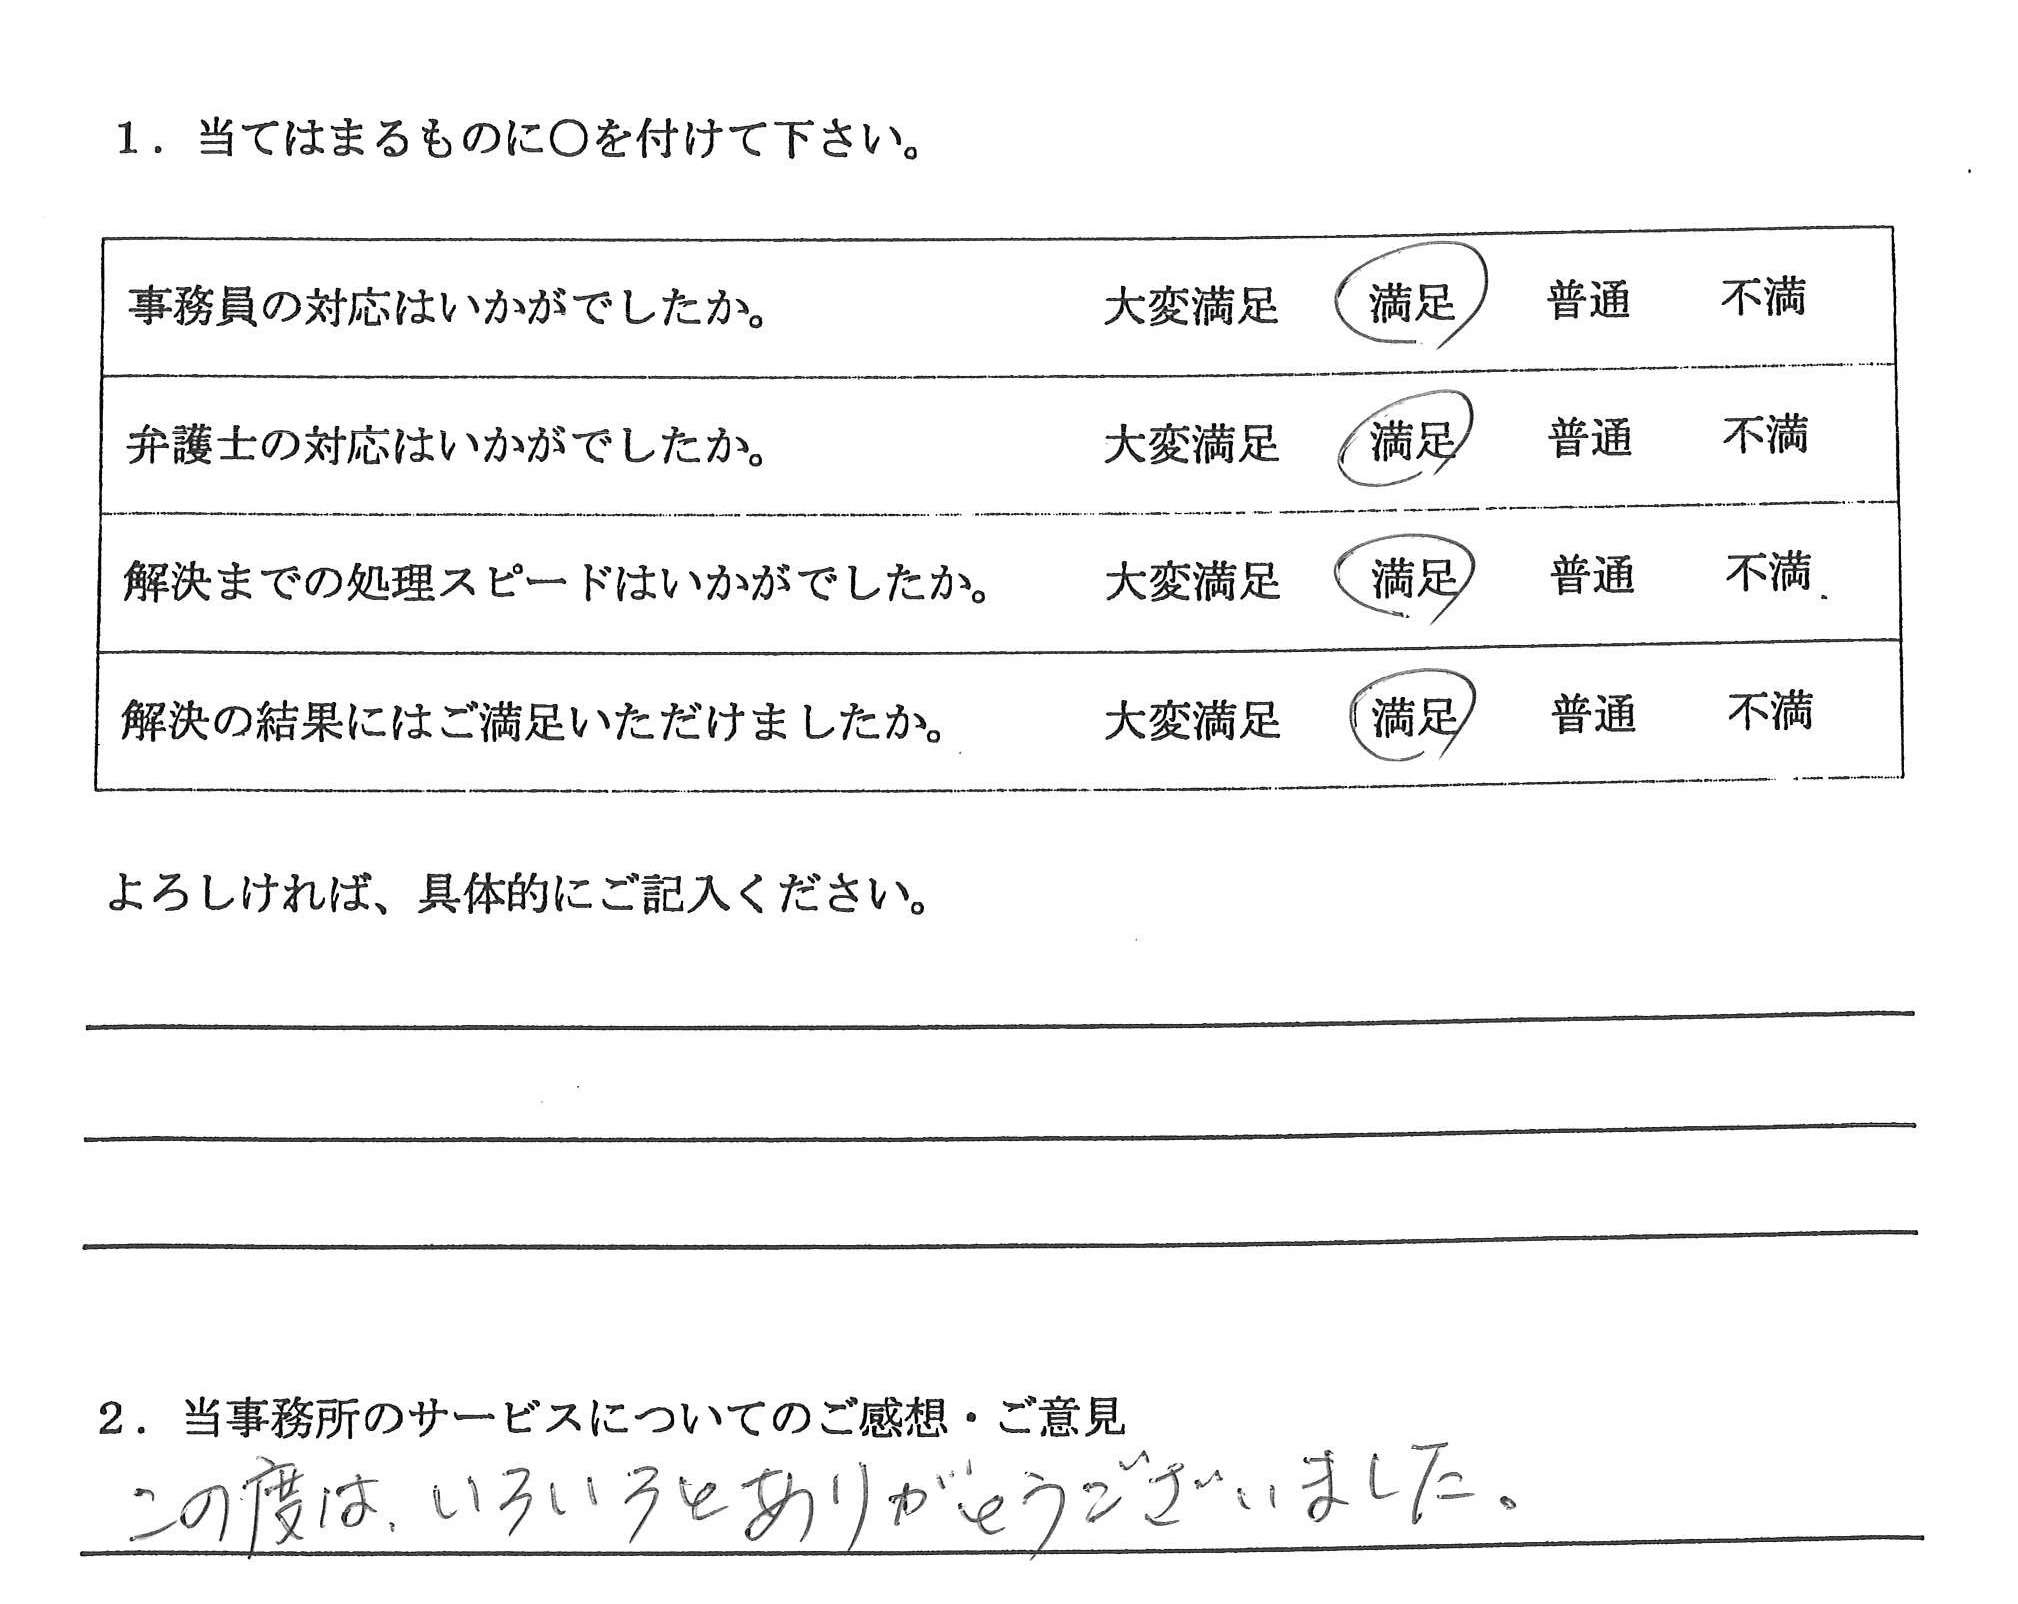 1．当てはまるものに〇を付けて下さい。
事務員の対応はいかがでしたか。 大変満足 満足 普通 不満
弁護士の対応はいかがでしたか。 大変満足 満足 普通 不満
解決までの処理スピードはいかがでしたか。 大変満足 満足 普通 不満
解決の結果にはご満足いただけましたか。 大変満足 満足 普通 不満
よろしければ、具体的にご記入ください。
2．当事務所のサービスについてのご感想・ご意見
この度は、いろいろとありがとうございました。